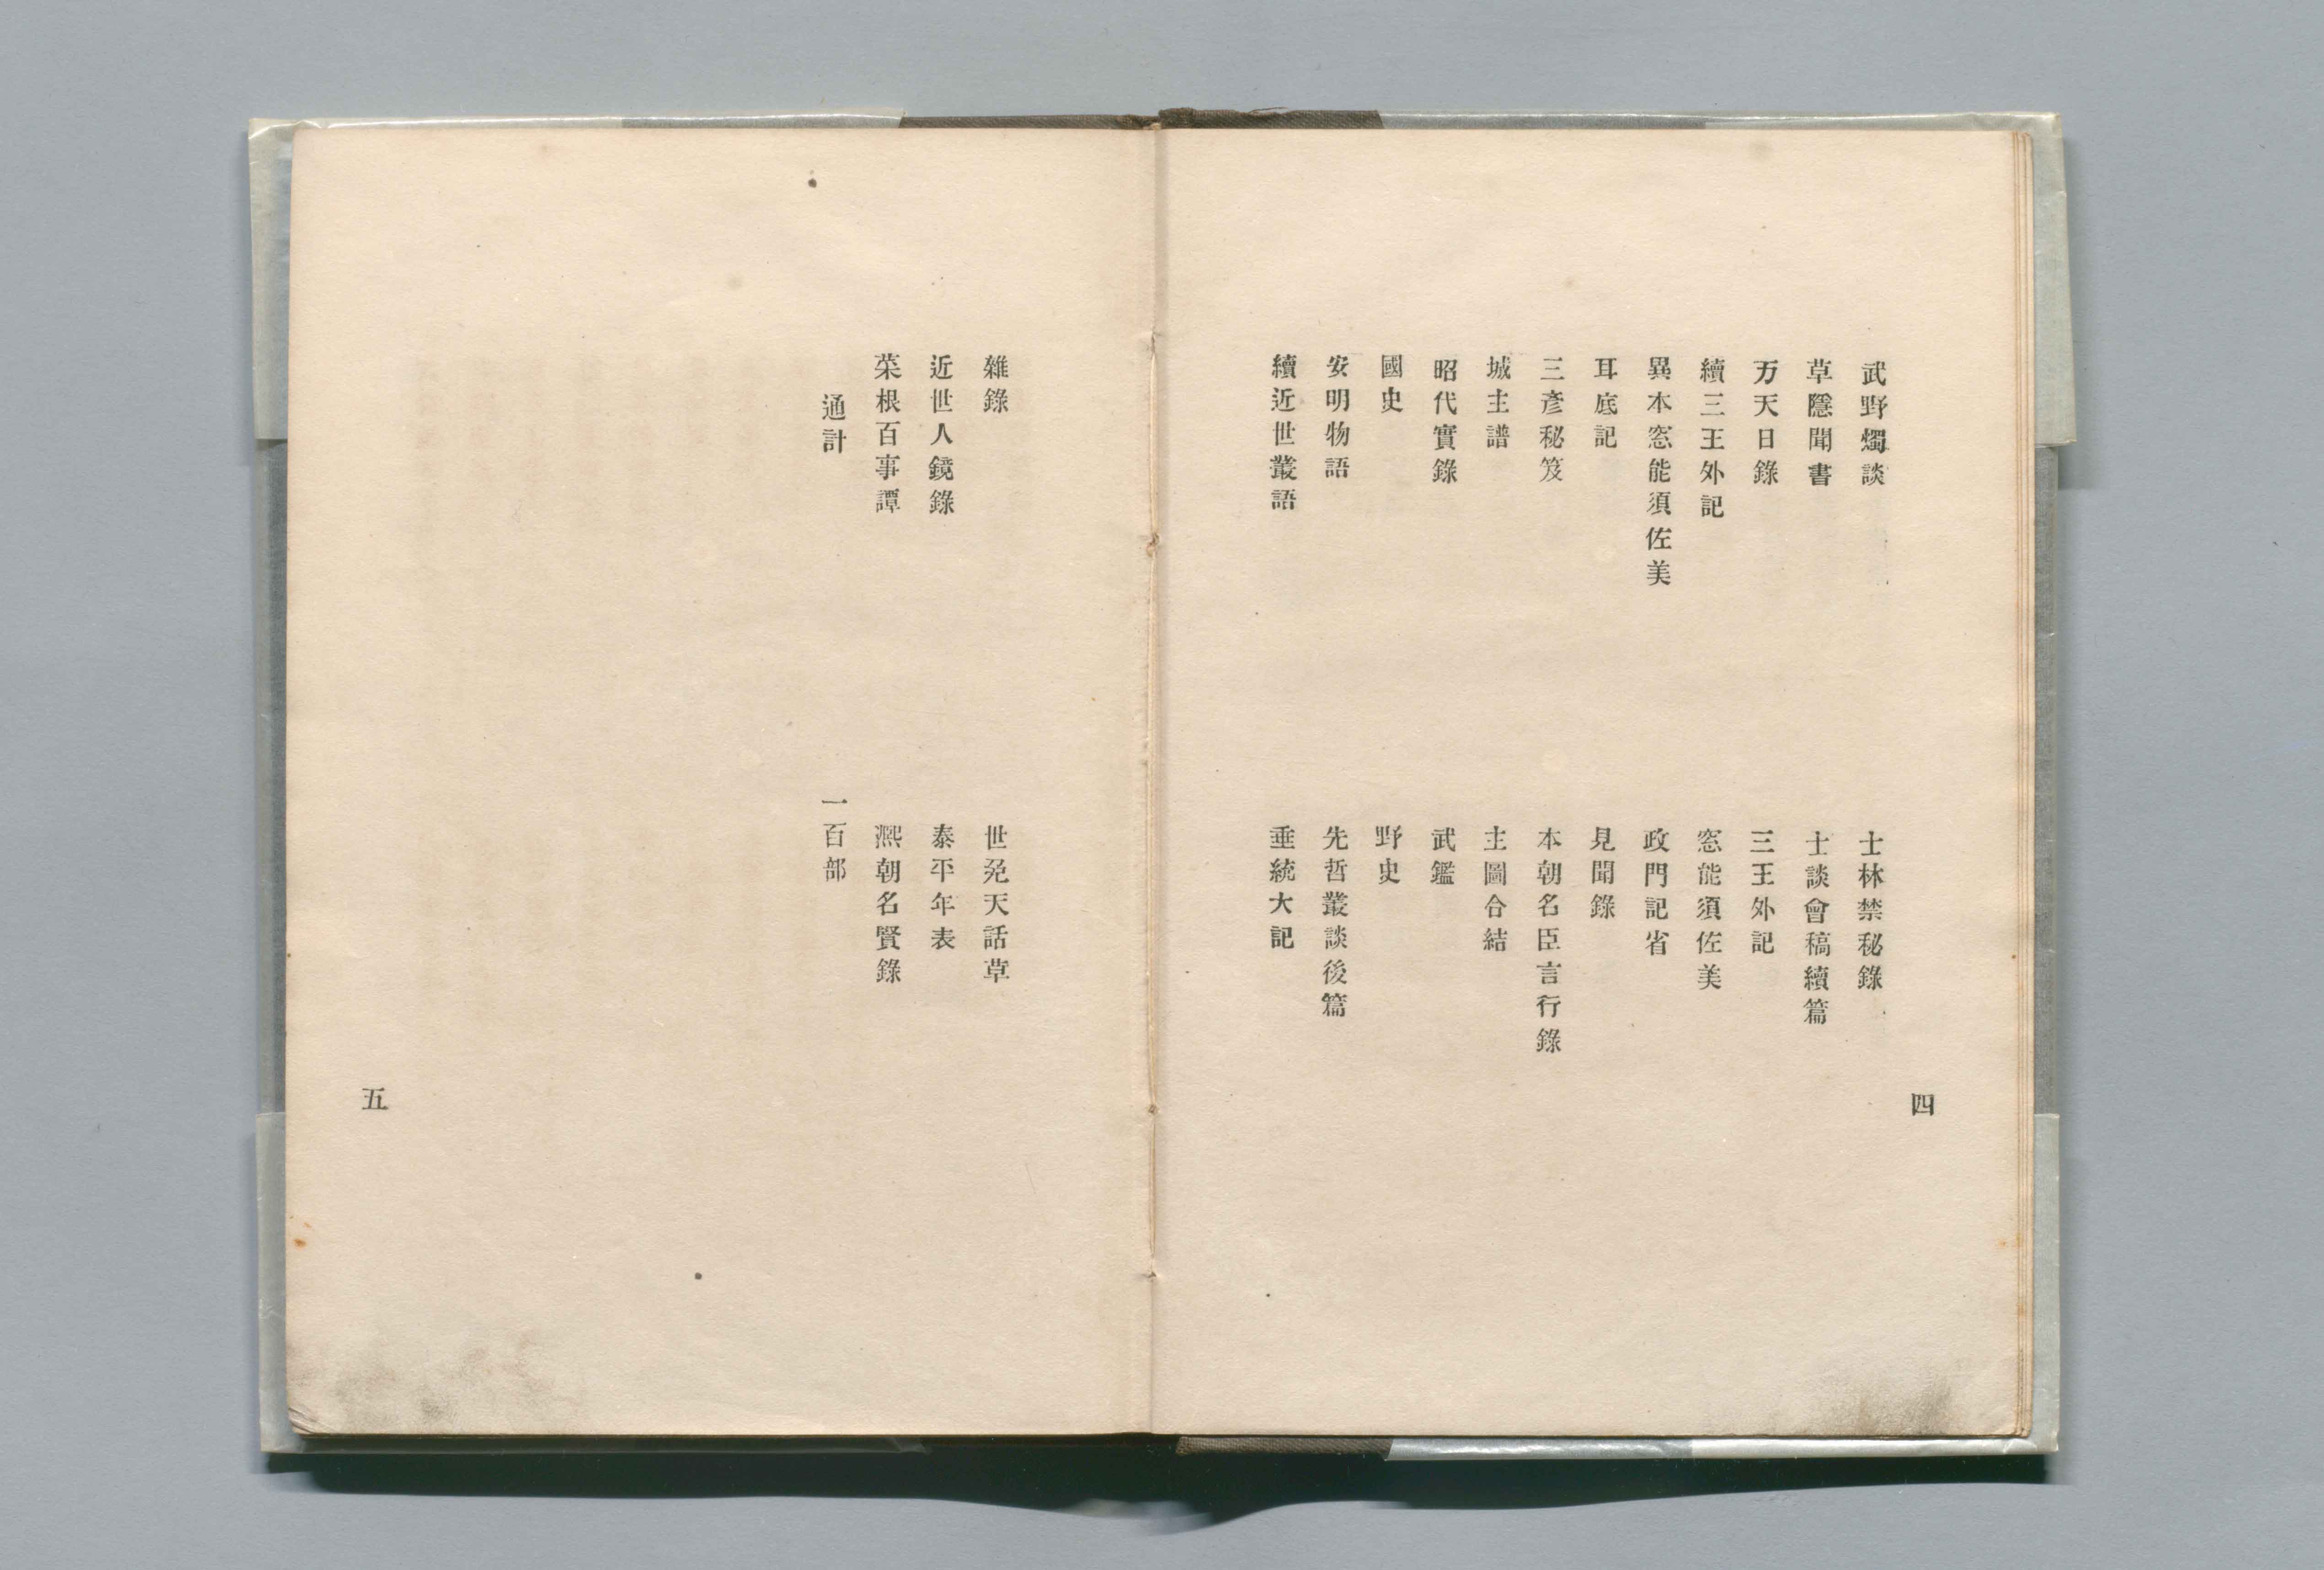 武野燭談
士林禁秘錄
草隱聞書
士談會稿續篇
万天日錄
三王外記
續三王外記
窓能須佐美
異本窓能須佐美
政門記省
耳底記
見聞錄
三彥秘笈
本朝名臣言行錄
城主譜
主圖合結
昭代實錄
武鑑
國史
野史
安明物語
先哲叢談後篇
續近世叢語
垂統大記
四
雜錄
世〻天話草
近世人鏡錄
泰平年表
菜根百事譚
熈朝名賢錄
通計
一百部
五